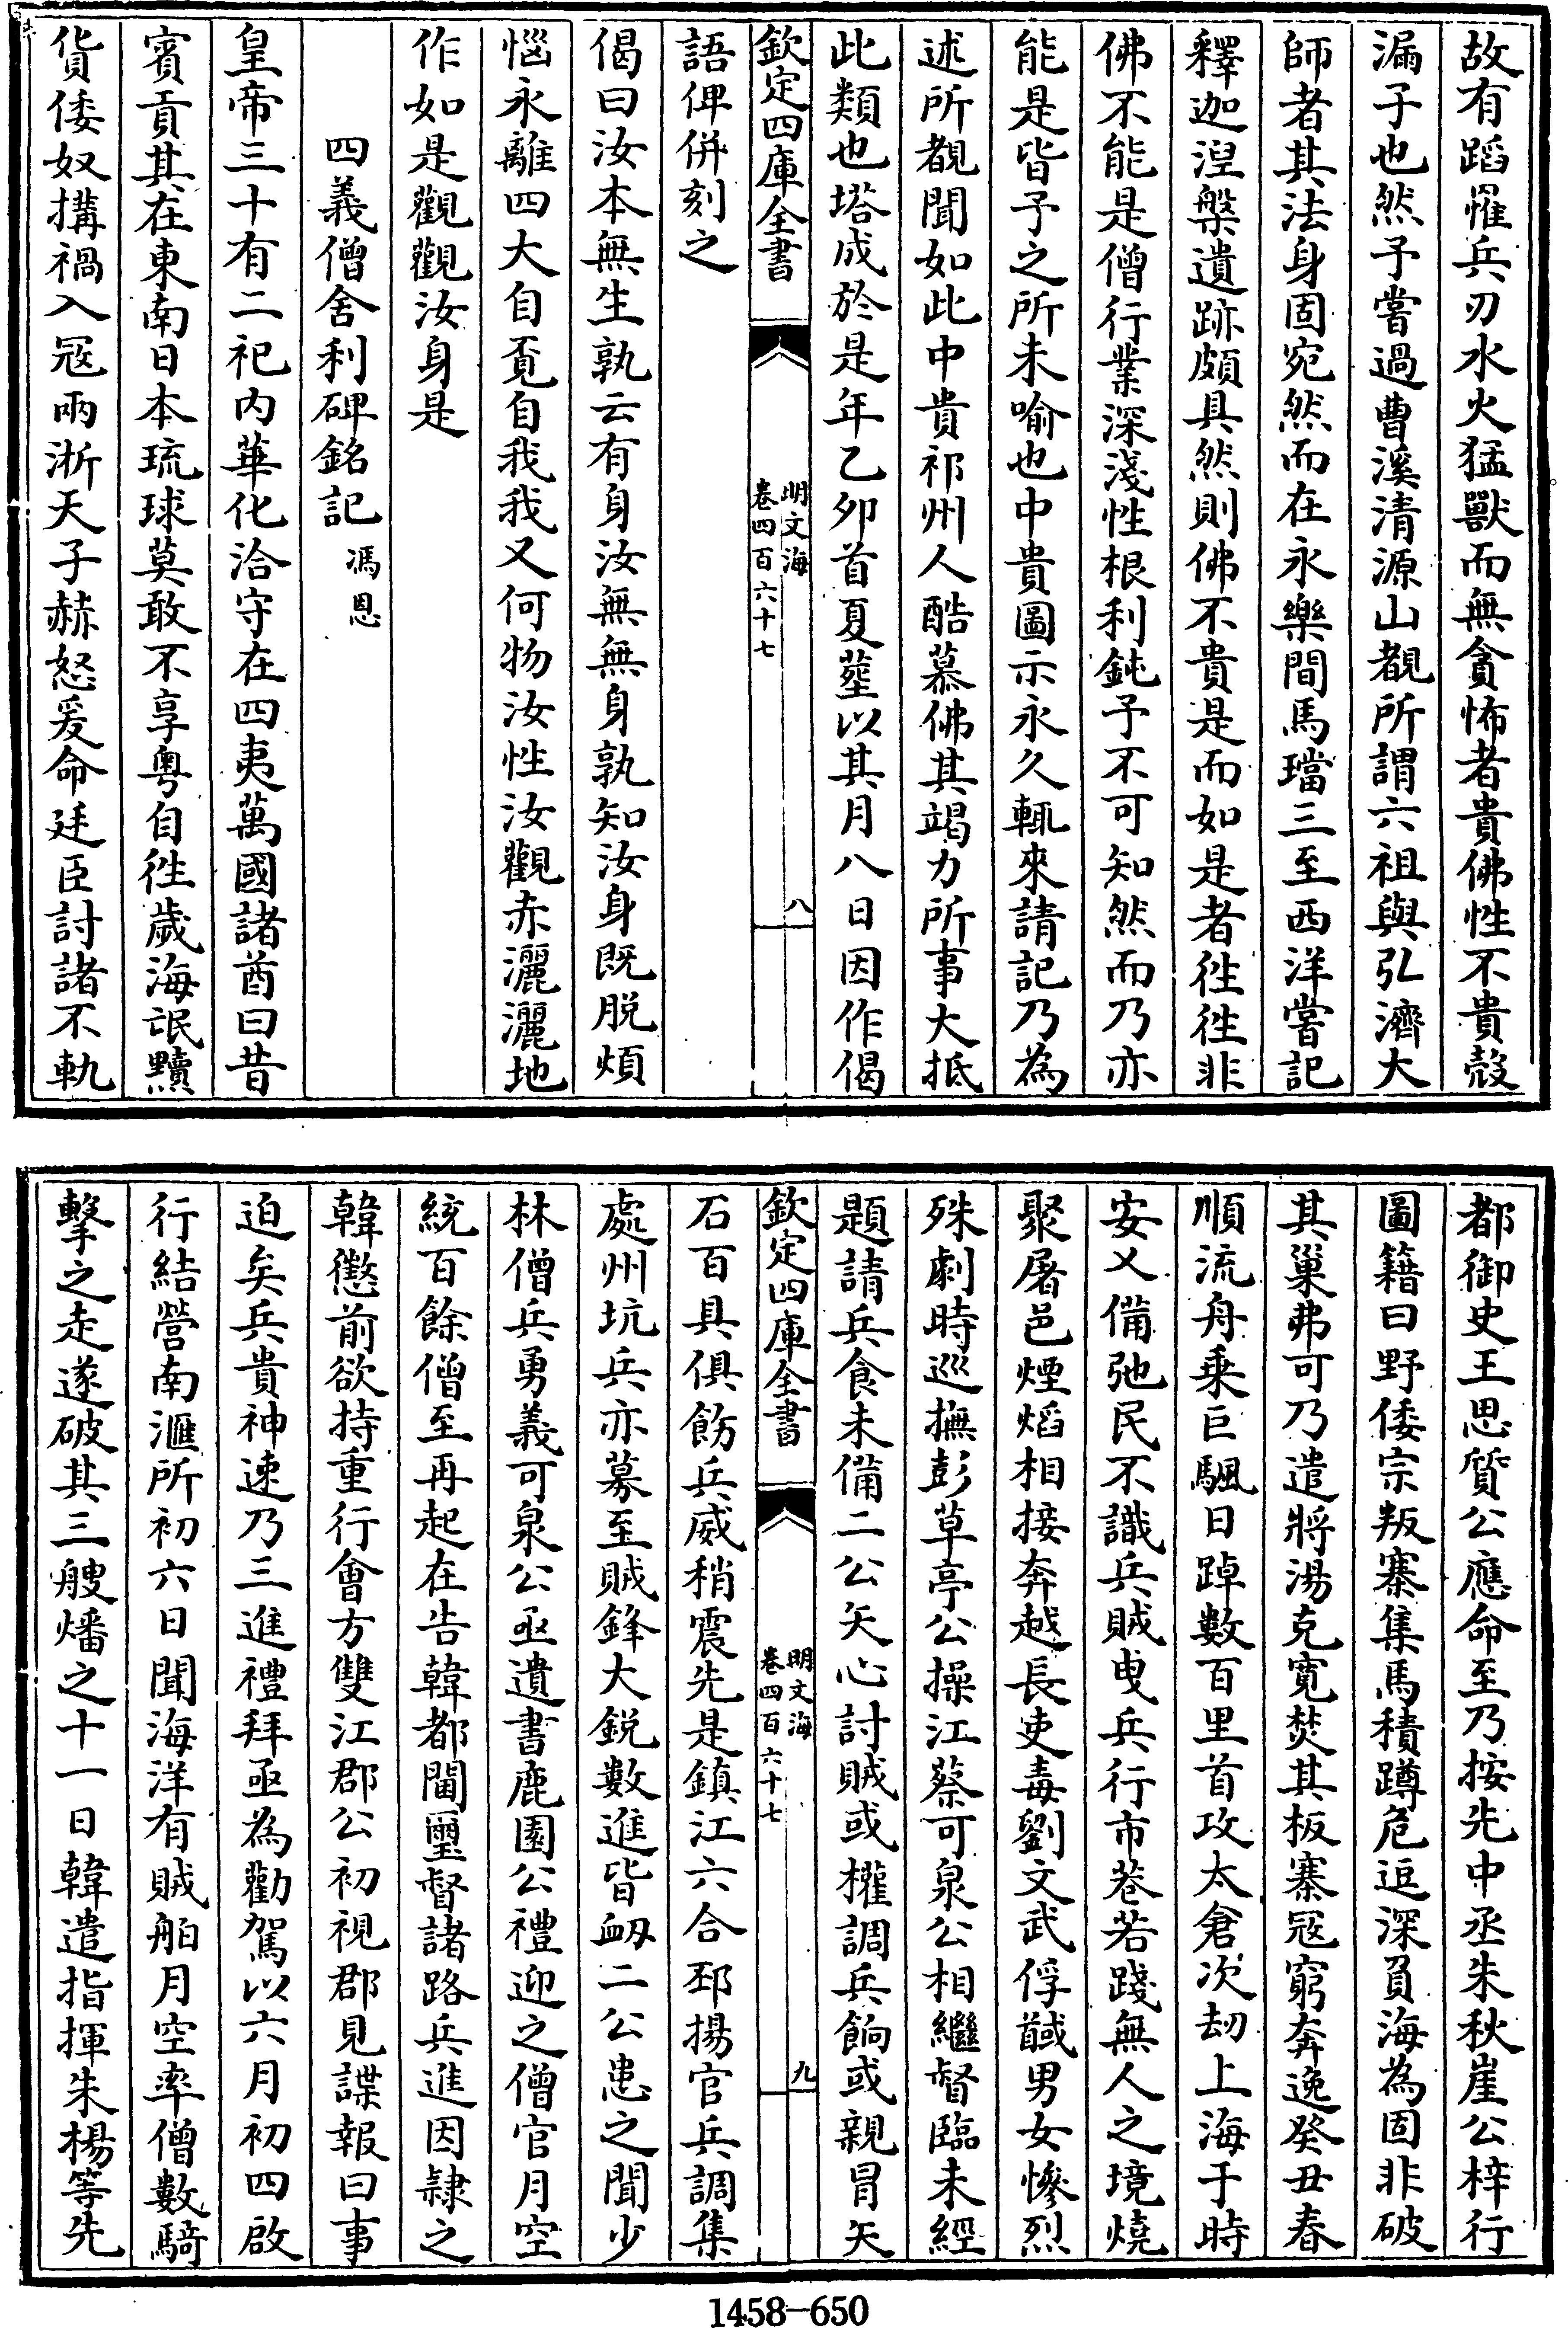 故有蹈罹兵刃水火猛獸而無貪怖者貴佛性不貴殼
漏子也然予嘗過曹溪清源山覩所謂六祖與弘濟大
師者其法身固宛然而在永樂間馬璫三至西洋嘗記
釋迦湼槃遺跡頗具然則佛不貴是而如是者徃徃非
佛不能是僧行業深淺性根利鈍予不可知然而乃亦
能是皆予之所未喻也中貴圖示永久輒來請記乃為
述所覩聞如此中貴祁州人酷慕佛其竭力所事大抵
此類也塔成於是年乙夘首夏塟以其月八日因作偈
欽定四庫全書
明文海
卷四百六十七
八
語俾併刻之
偈曰汝本無生孰云有身汝無無身孰知汝身既脱煩
惱永離四大自覔自我我又何物汝性汝觀赤灑灑地
作如是觀觀汝身是
四義僧舍利碑銘記 馮恩
皇帝三十有二祀内華化洽守在四夷萬國諸酋曰昔
賓貢其在東南日本琉球莫敢不享粤自徃歲海氓黷
貨倭奴搆禍入冦兩淛天子赫怒爰命廷臣討諸不軌
都御史王思質公應命至乃按先中丞朱秋崖公梓行
圖籍曰野倭宗叛寨集馬積蹲危逗深負海為固非破
其巢弗可乃遣將湯克寛焚其板寨冦窮奔逸癸丑春
順流舟乗巨颿日踔數百里首攻太倉次刼上海于時
安乂備弛民不識兵賊曳兵行市巷若踐無人之境燒
聚屠邑煙熖相接奔越長吏毒劉文武俘馘男女慘烈
殊劇時巡撫彭草亭公操江蔡可泉公相繼督臨未經
題請兵食未備二公矢心討賊或權調兵餉或親冒矢
欽定四庫全書
明文海
卷四百六十七
九
石百具俱飭兵威稍震先是鎮江六合邳揚官兵調集
處州坑兵亦募至賊鋒大鋭數進皆衂二公患之聞少
林僧兵勇義可泉公亟遺書鹿園公禮迎之僧官月空
統百餘僧至再起在告韓都閫璽督諸路兵進因隷之
韓懲前欲持重行會方雙江郡公初視郡見諜報曰事
迫矣兵貴神速乃三進禮拜亟為勸駕以六月初四啟
行結營南滙所初六日聞海洋有賊舶月空率僧數騎
擊之走遂破其三艘燔之十一日韓遣指揮朱楊等先
1458-650